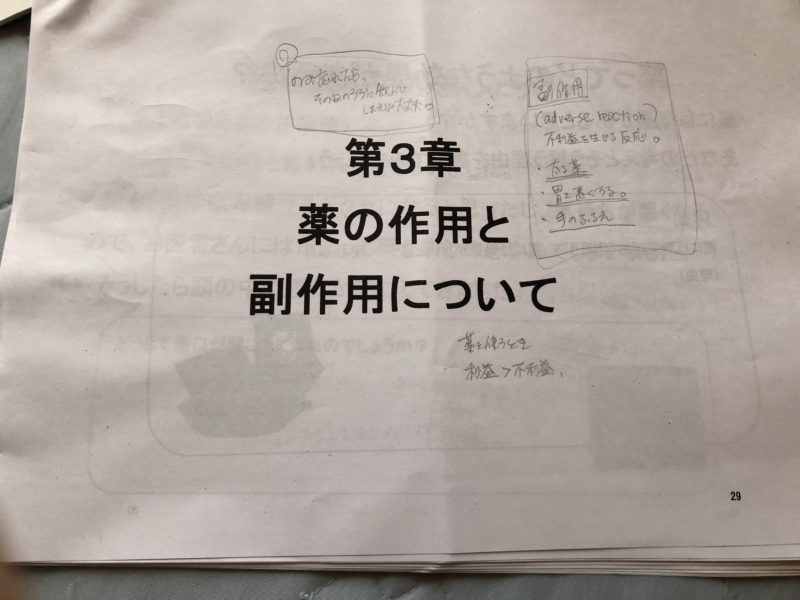 のみ忘れたら、
その日のうちに飲んで
しまえば大丈夫。
副作用
(adverse reaction)
不利益を生せる反応。
・太る薬
・胃を悪くする。
・手のふるえ
第3章
薬の作用と
副作用について
薬を使うとき
利益>不利益、
29